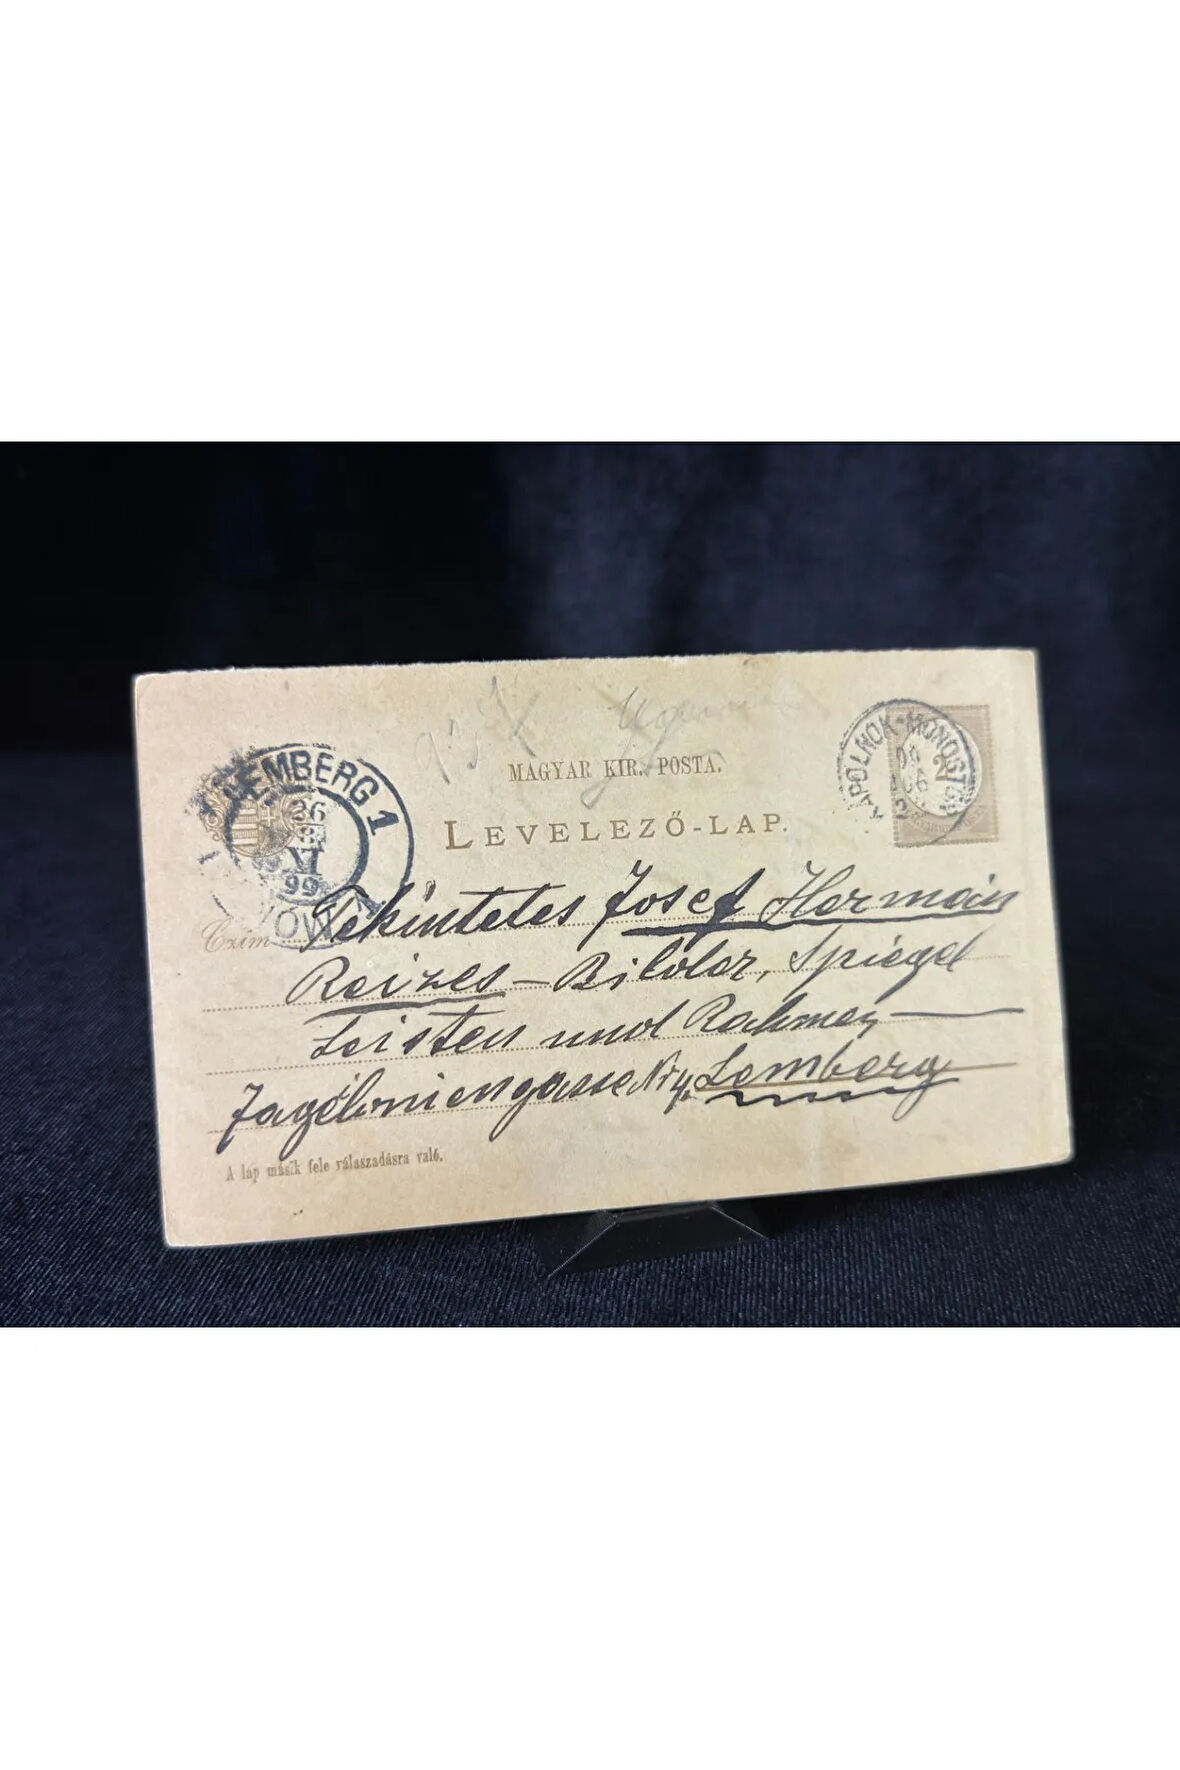 MAGYAR KIR. POSTA.
LEVELEZŐ-LAP.
LEMBERG 1
26
IX
99
KÁPOLNOK-MONOSTOR
2
Czim
Tekintetes Josef Hermán
Reizes – Bilder, Spiegel
Leisten und Rahmen
Jagelloniengasse Nr 4, Lemberg
A lap másik fele válaszadásra való.